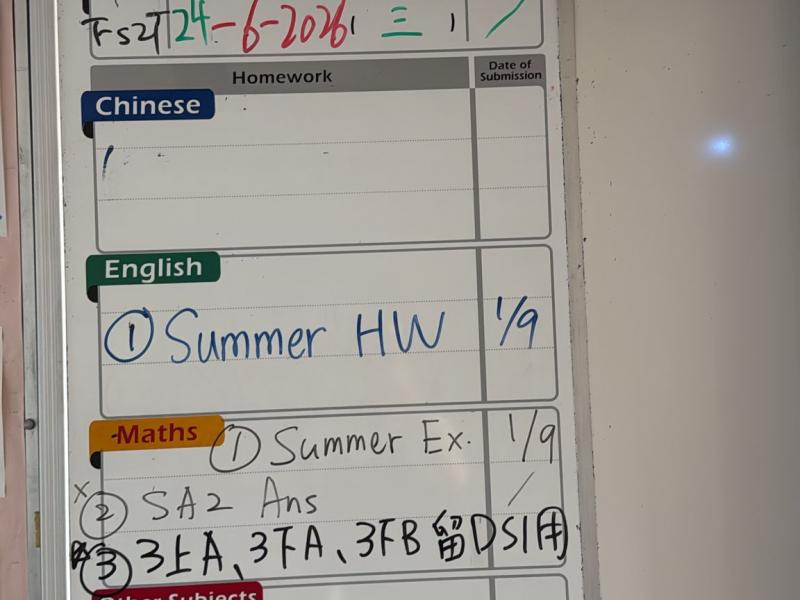 24-6-2026 (三)
Homework
Date of Submission
Chinese
English
① Summer HW 1/9
Maths ① Summer Ex. 1/9
② SA2 Ans /
③ 3上A、3下A、3下B 留DS1用
Other Subjects